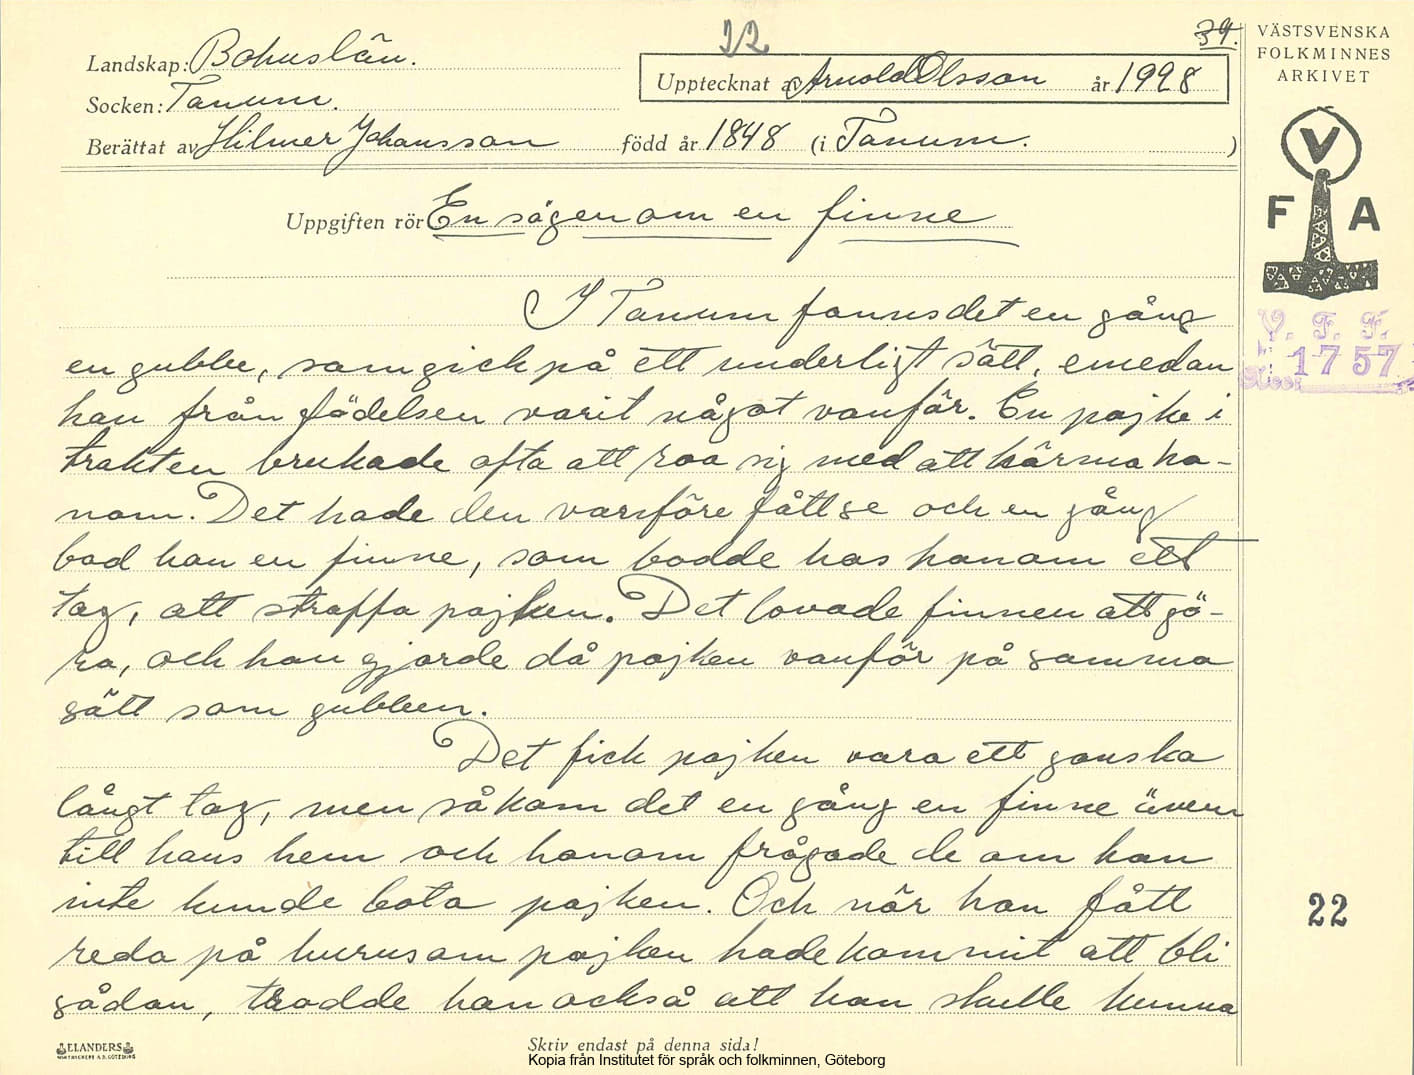 22
39.
VÄSTSVENSKA
FOLKMINNES
ARKIVET
Landskap: Bohuslän.
Upptecknat av Arnold Olsson år 1928
Socken: Tanum.
Berättat av Hilmer Johansson född år 1848 (i Tanum. )
V
F A
Uppgiften rör En sägen om en finne
I Tanum fanns det en gång
V. F. F.
1757
en gubbe, som gick på ett underligt sätt, emedan
han från födelsen varit något vanför. En pojke i
trakten brukade ofta att roa sig med att härma ho-
nom. Det hade den vanföre fått se och en gång
bad han en finne, som bodde hos honom ett
tag, att straffa pojken. Det lovade finnen att gö-
ra, och han gjorde då pojken vanför på samma
sätt som gubben.
Det fick pojken vara ett ganska
långt tag, men så kom det en gång en finne även
till hans hem och honom frågade de om han
inte kunde bota pojken. Och när han fått
22
reda på hurusom pojken hade kommit att bli
sådan, trodde han också att han skulle kunna
ELANDERS
Skriv endast på denna sida!
Kopia från Institutet för språk och folkminnen, Göteborg